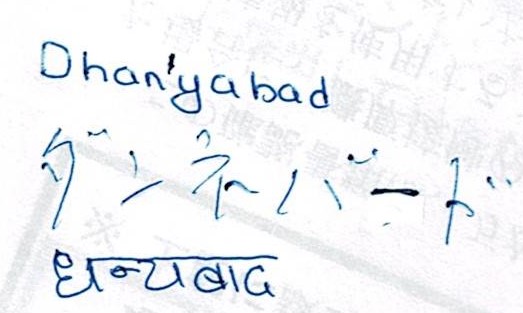 Dhan'yabad
ダンネバード
धन्यबाद